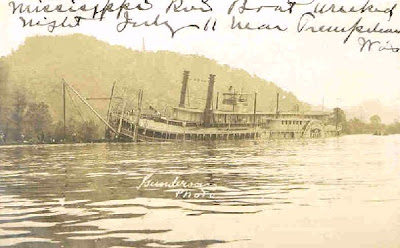 Mississippi Riv Boat wrecked
night July 11 near Trempeleau
Wis
Gunderson
Photo